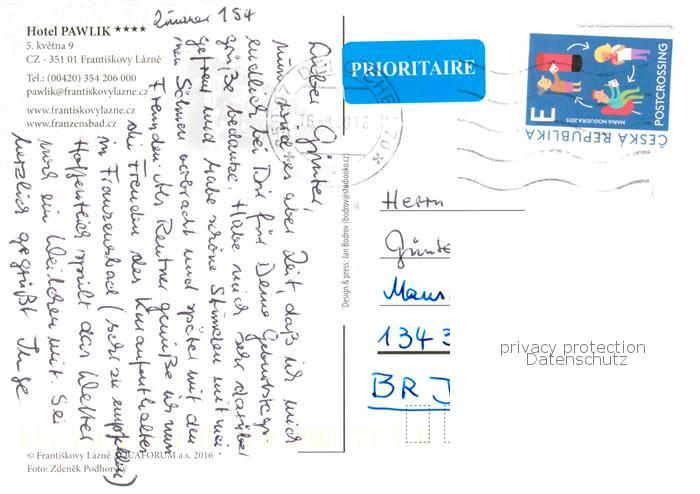 Zimmer 154
Hotel PAWLIK ★★★★
5. května 9
CZ - 351 01 Františkovy Lázně
Tel.: (00420) 354 206 000
pawlik@frantiskovylazne.cz
www.frantiskovylazne.cz
www.franzensbad.cz
Lieber Günter,
nun wird es aber Zeit, daß ich mich
endlich bei Dir für Deine Geburtstags-
grüße bedanke. Habe mich sehr darüber
gefreut und habe schöne Stunden mit mei-
nen Söhnen verbracht und später mit den
Freunden. Als Rentner genieße ich nun
die Freuden des Kuraufenthaltes
in Franzensbad (sehr zu empfehlen)
Hoffentlich spielt das Wetter
noch ein Weilchen mit. Sei
herzlich gegrüßt Inge
© Františkovy Lázně AQUAFORUM a.s. 2016
Foto: Zdeněk Podhorský
Design & press: Jan Bodrov (bodrov@studiookko.cz)
PRIORITAIRE
POSTCROSSING
MARIA NOGUEIRA 2015
E
ČESKÁ REPUBLIKA
Herrn
Günte
Maus
1343
BR
privacy protection
Datenschutz